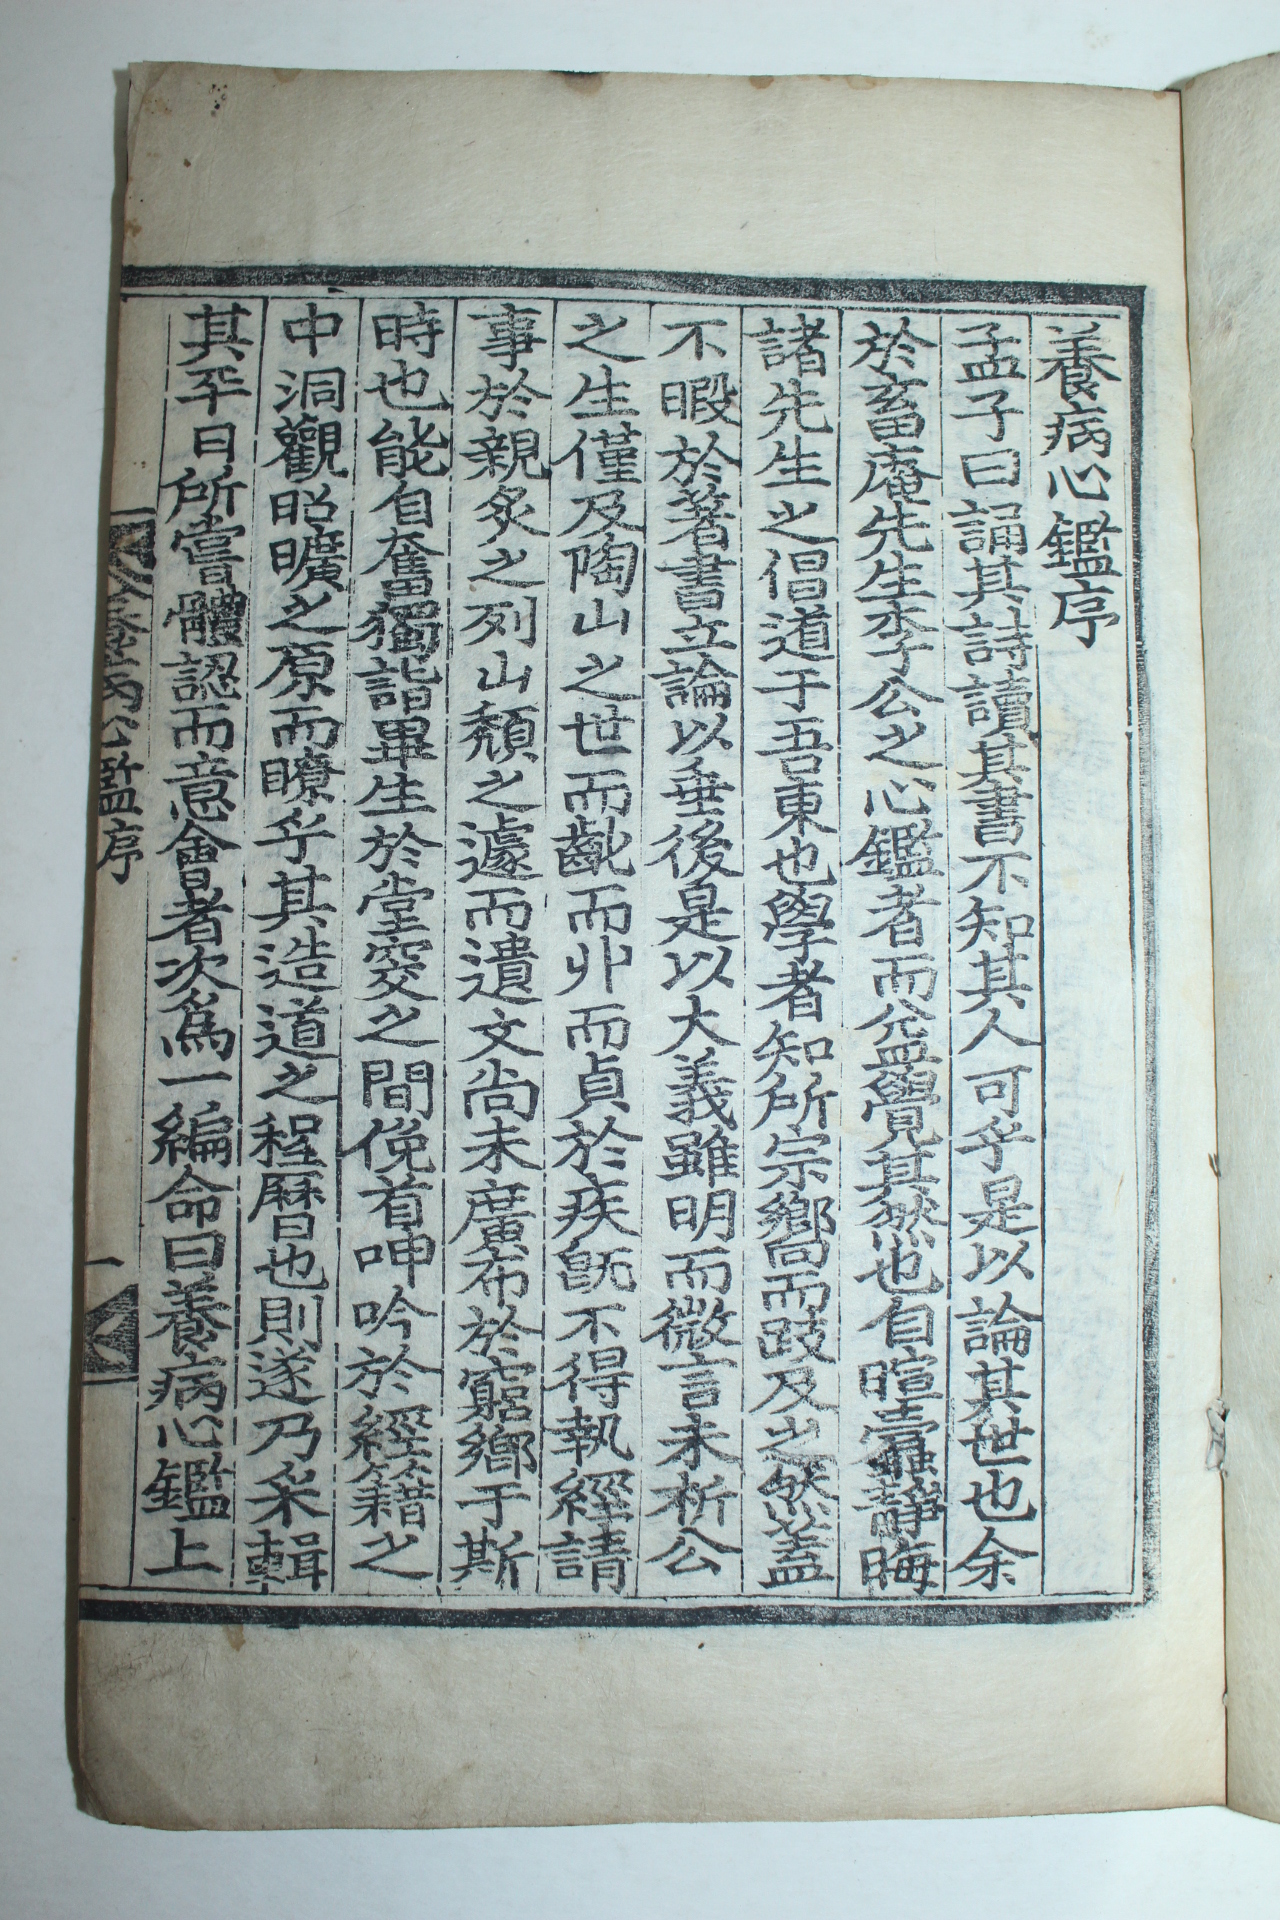 養病心鑑序
孟子曰誦其詩讀其書不知其人可乎是以論其世也余
於畜庵先生李公之心鑑者而益覺其然也自暄蠹靜晦
諸先生之倡道于吾東也學者知所宗鄉向而跂及之然蓋
不暇於著書立論以垂後是以大義雖明而微言未析公
之生僅及陶山之世而齔而丱而貞於疾旣不得執經請
事於親炙之列山頹之遽而遺文尚未廣布於窮鄉于斯
時也能自奮獨詣畢生於堂穾之間俛首呻吟於經籍之
中洞觀昭曠之原而瞭乎其造道之程曆也則遂乃采輯
其平日所嘗體認而意會者次爲一編命曰養病心鑑上
養病心鑑序
一